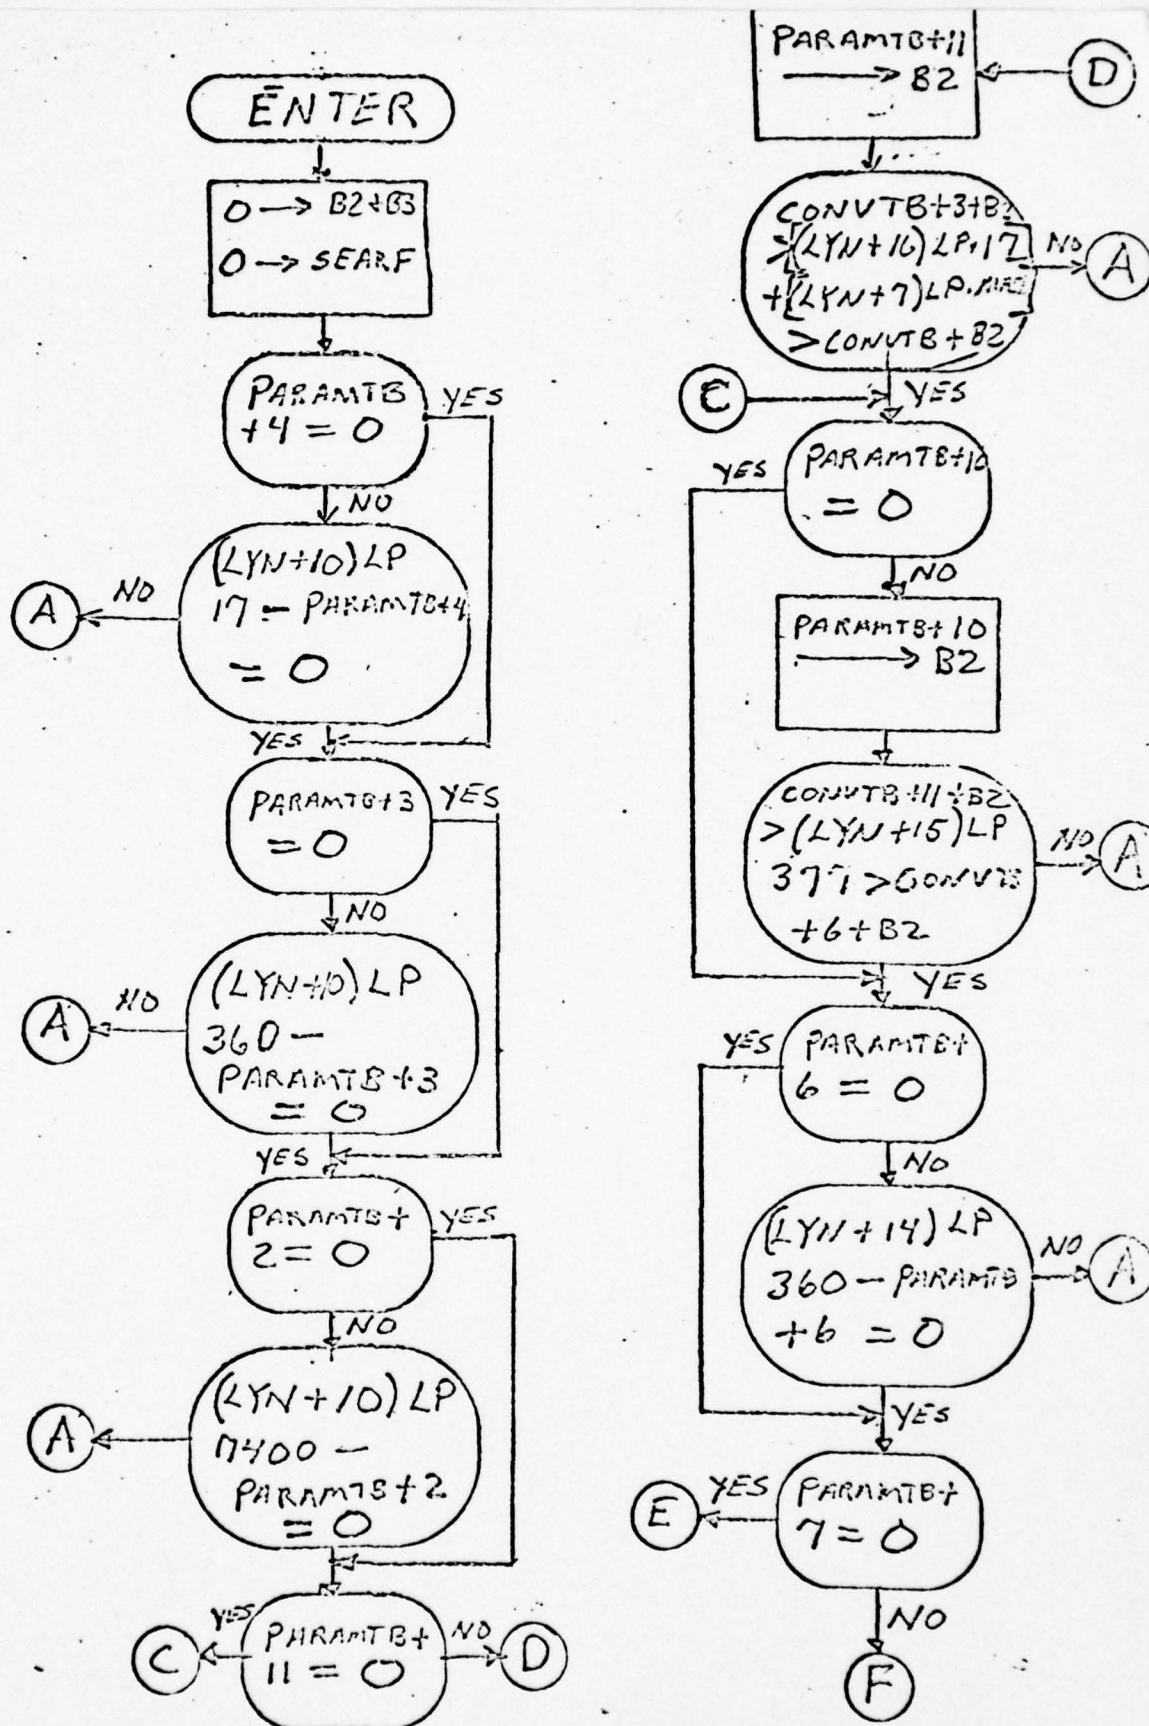 ENTER
0 → B2+B3
0 → SEARF
PARAMTB
+4 = 0
YES
NO
(LYN+10)LP
17 - PARAMTB+4
= 0
NO
A
YES
PARAMTB+3
= 0
YES
NO
(LYN+10)LP
360 -
PARAMTB+3
= 0
NO
A
YES
PARAMTB+
2 = 0
YES
NO
(LYN+10)LP
7400 -
PARAMTB+2
= 0
A
PARAMTB+
11 = 0
YES
C
NO
D
PARAMTB+11
→ B2
D
CONVTB+3+B2
>[(LYN+16)LP.17]
+[(LYN+7)LP.
> CONVTB+B2
NO
A
C
YES
PARAMTB+10
= 0
YES
NO
PARAMTB+10
→ B2
CONVTB+11+B2
>(LYN+15)LP
377 > CONVTB
+6+B2
NO
A
YES
PARAMTB+
6 = 0
YES
NO
(LYN+14)LP
360 - PARAMTB
+6 = 0
NO
A
YES
PARAMTB+
7 = 0
YES
E
NO
F